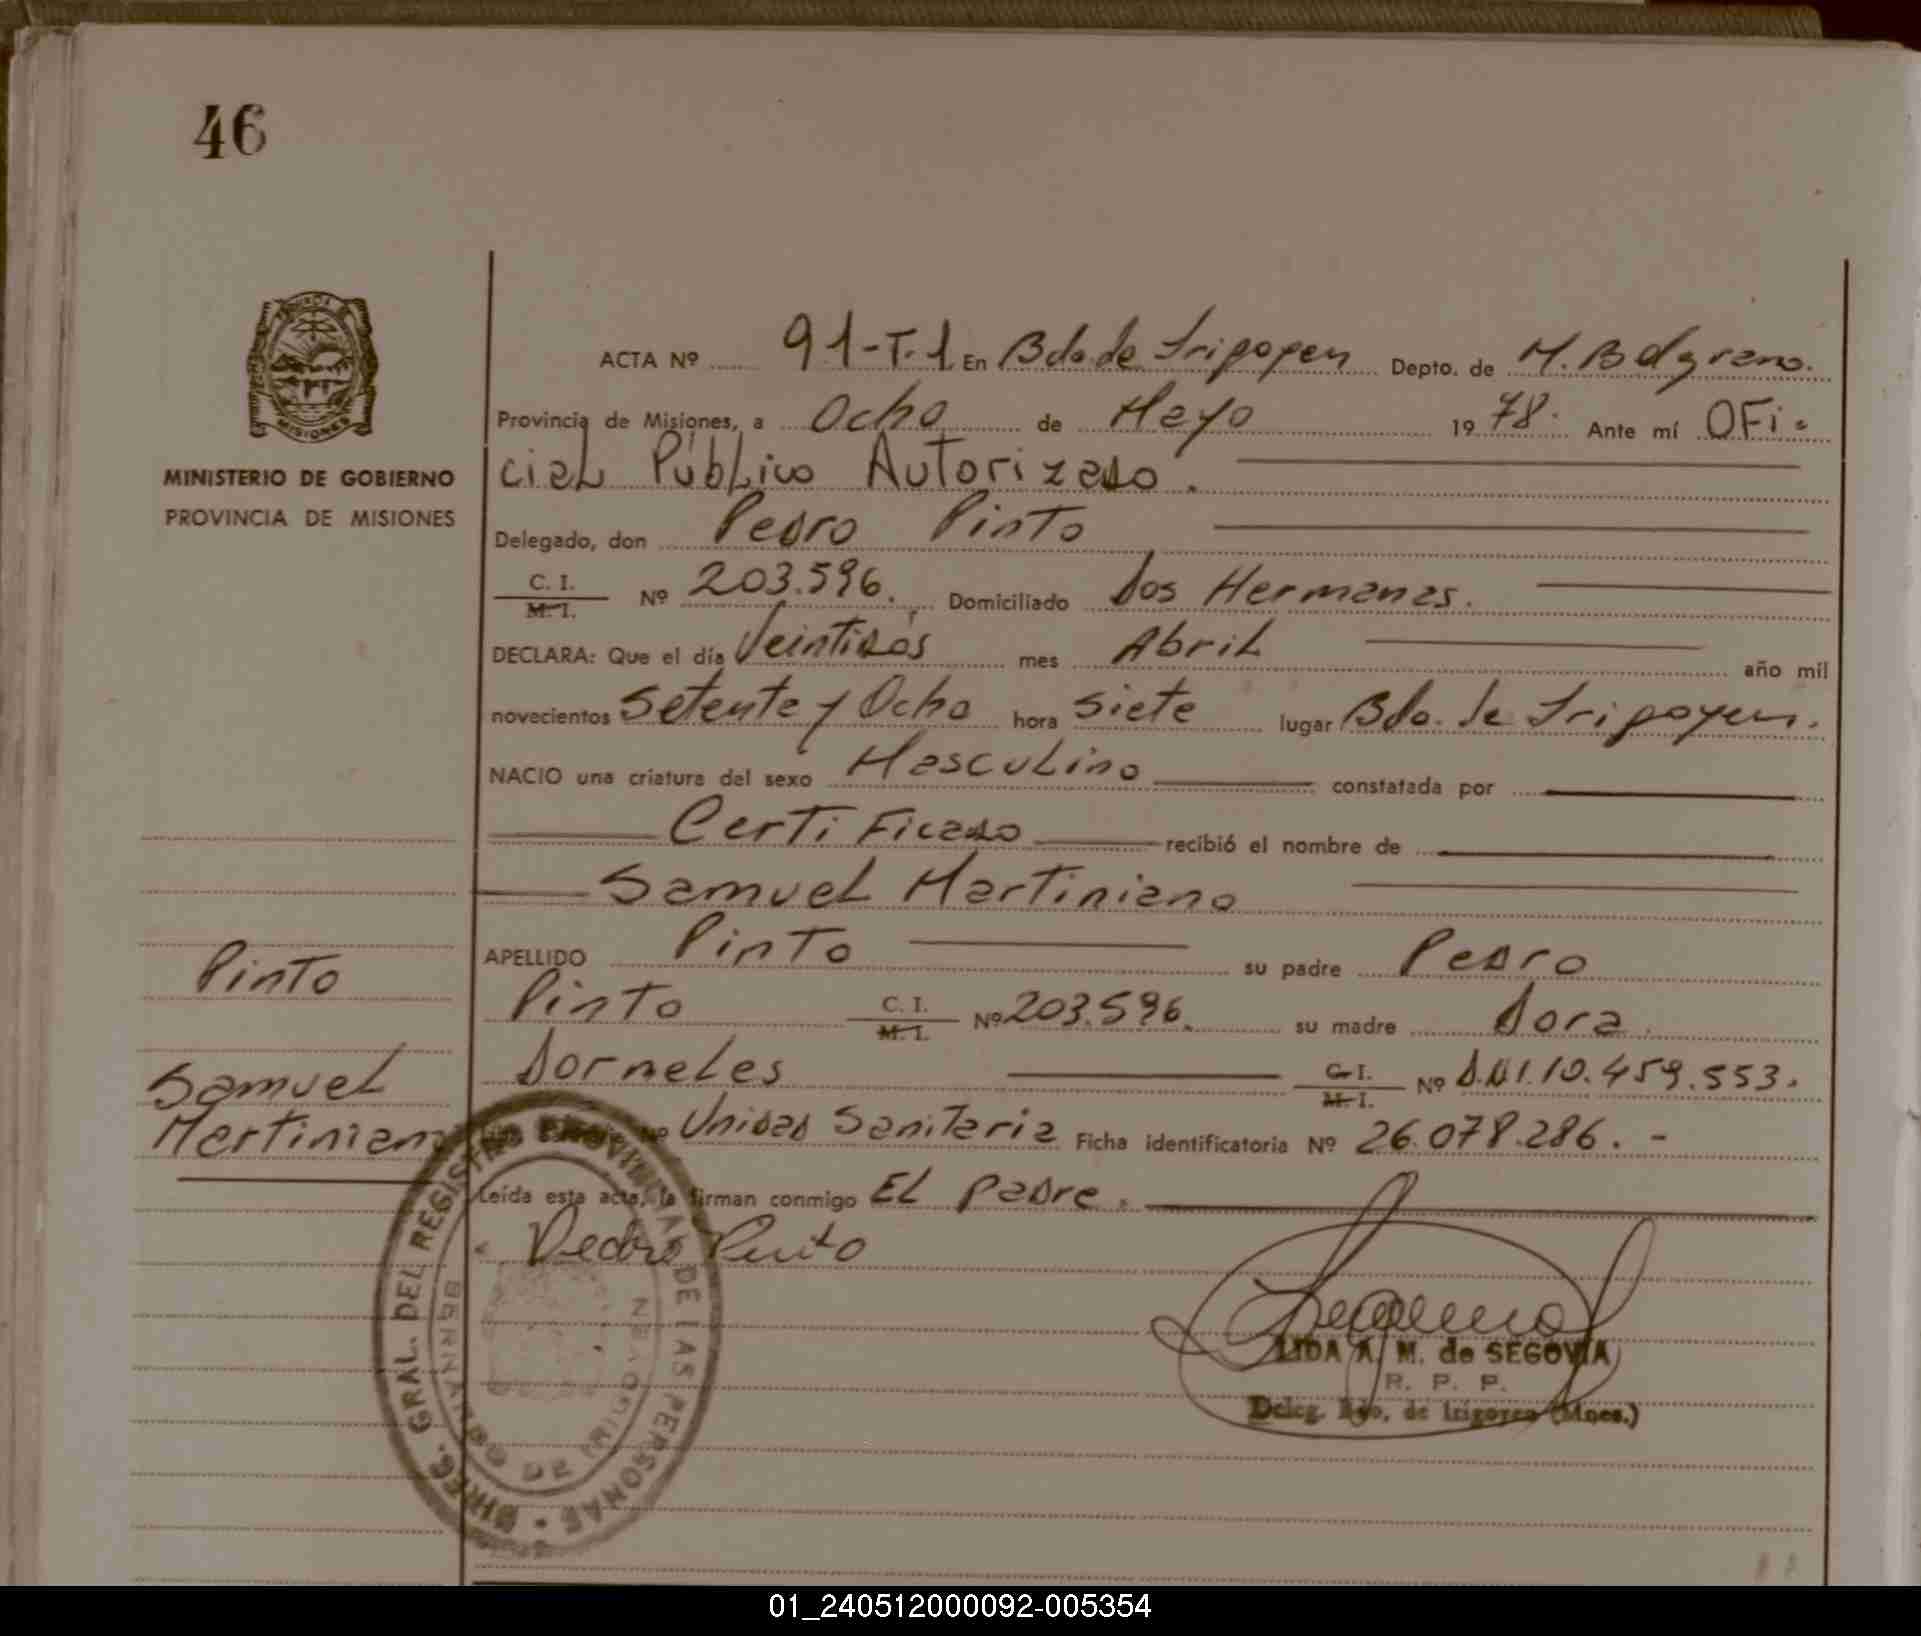 46
MINISTERIO DE GOBIERNO
PROVINCIA DE MISIONES
ACTA Nº 91-T.1 En Bdo. de Irigoyen Depto. de M. Belgrano.
Provincia de Misiones, a Ocho de Mayo 1978. Ante mí OFi-
ciaL PúbLico Autorizado.
Delegado, don Pedro Pinto
C. I. M. I. Nº 203.596. Domiciliado Dos Hermanas.
DECLARA: Que el día Veintidós mes AbriL año mil
novecientos Setenta y Ocho hora Siete lugar Bdo. de Irigoyen.
NACIO una criatura del sexo MascuLino constatada por
CertiFicado recibió el nombre de
SamueL Martiniano
APELLIDO Pinto su padre Pedro
Pinto C. I. M. I. Nº 203.596. su madre Dora
DorneLes C. I. M. I. Nº D.N.I.10.459.553.
Unidad Sanitaria Ficha identificatoria Nº 26.078.286. -
Leída esta acta, la firman conmigo EL padre.
Pedro Pinto
Pinto
SamueL
Martiniano
DIREC. GRAL. DEL REGISTRO PROVINCIAL DE LAS PERSONAS
BERNARDO DE IRIGOYEN
LIDA A. M. de SEGOVIA
R. P. P.
Deleg. Bdo. de Irigoyen (Mnes.)
01_240512000092-005354